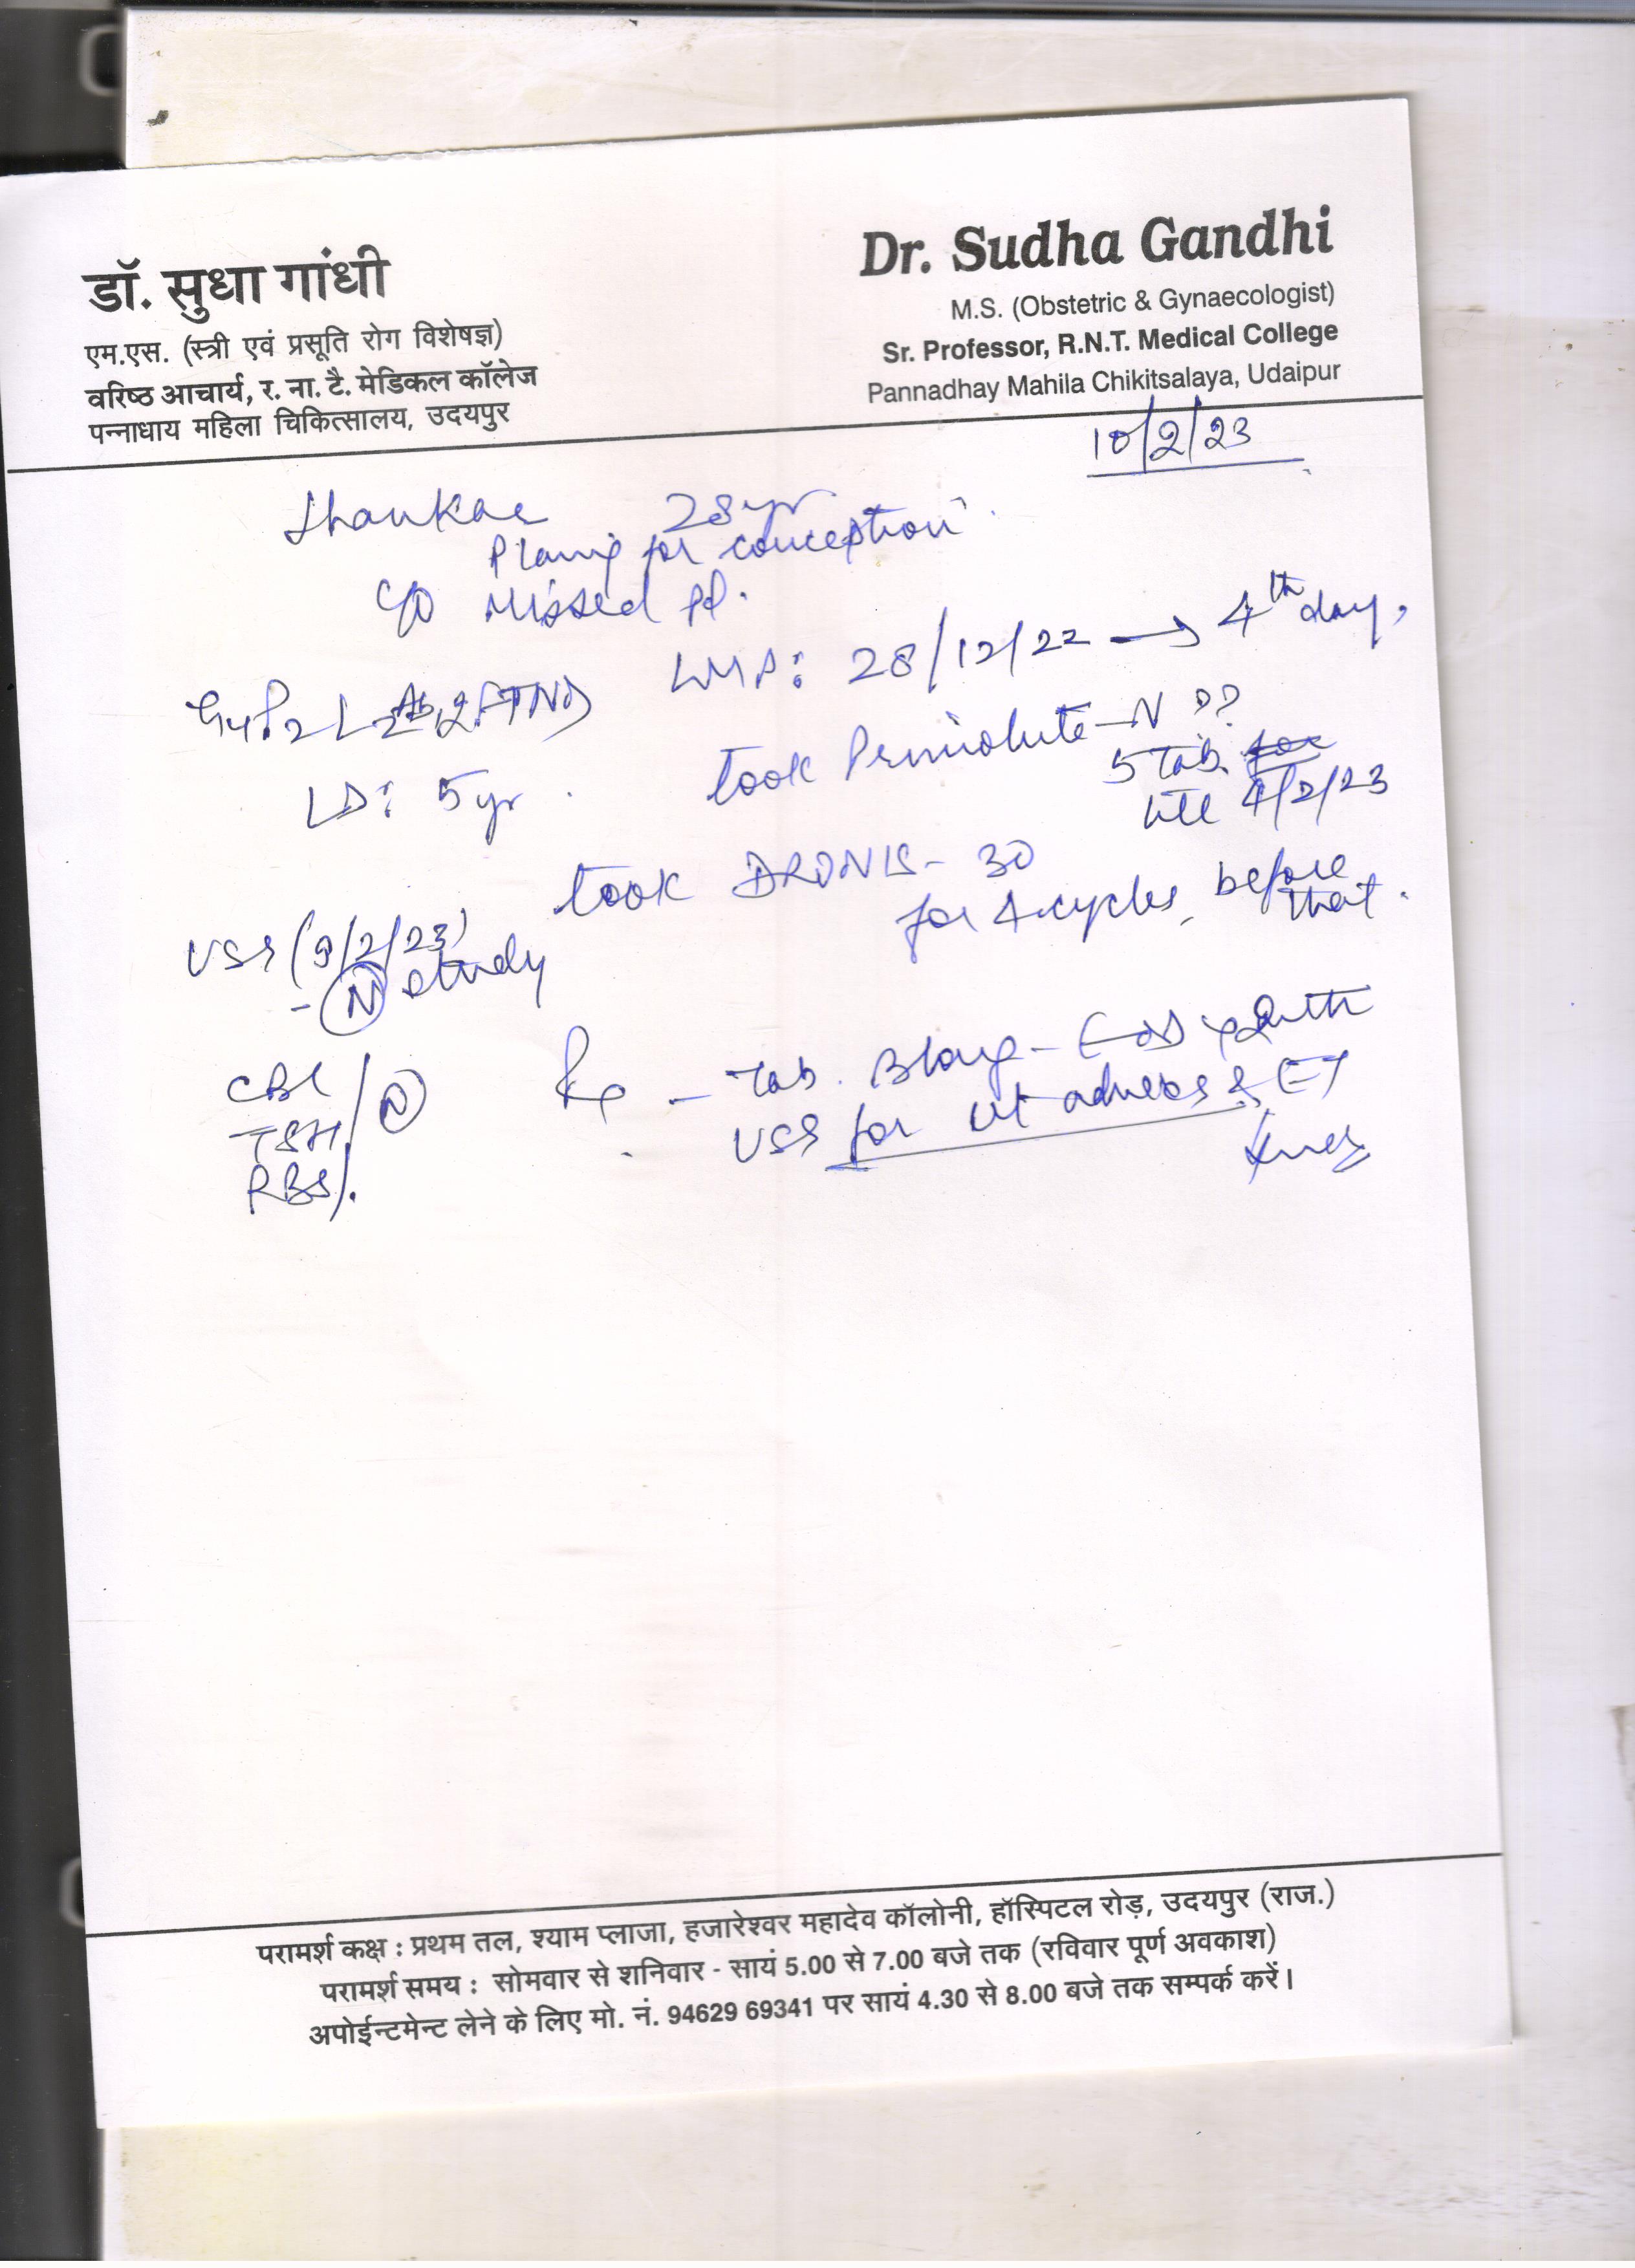 डॉ. सुधा गांधी
एम.एस. (स्त्री एवं प्रसूति रोग विशेषज्ञ)
वरिष्ठ आचार्य, र. ना. टै. मेडिकल कॉलेज
पन्नाधाय महिला चिकित्सालय, उदयपुर
Dr. Sudha Gandhi
M.S. (Obstetric & Gynaecologist)
Sr. Professor, R.N.T. Medical College
Pannadhay Mahila Chikitsalaya, Udaipur
10/2/23
28yr
for conception
C/O Missed
LMP: 28/12/22 → 4th day,
LD: 5yr.
took N ??
5 Tab
till 4/2/23
took DRONIS - 30
for 4 cycles, before that.
USG (9/2/23)
- (N) study
CBC
TSH / (N)
RBS
Rx - Tab.
USG for ut & ET
परामर्श कक्ष : प्रथम तल, श्याम प्लाजा, हजारेश्वर महादेव कॉलोनी, हॉस्पिटल रोड़, उदयपुर (राज.)
परामर्श समय : सोमवार से शनिवार - सायं 5.00 से 7.00 बजे तक (रविवार पूर्ण अवकाश)
अपोईन्टमेन्ट लेने के लिए मो. नं. 94629 69341 पर सायं 4.30 से 8.00 बजे तक सम्पर्क करें।